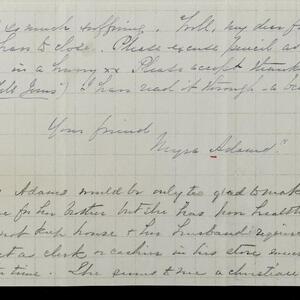 so much suffering. Well, my dear f
have to close. Please excuse pencil as
in a hurry xx Please accept thanks
Gems') I have read it through - a be
Your friend
Myra Adams."
Adams would be only too glad to mak
for her brother but she has poor health
not keep house & her husband requires
act as clerk or cashier in his store mu
time. She seems to me a christian